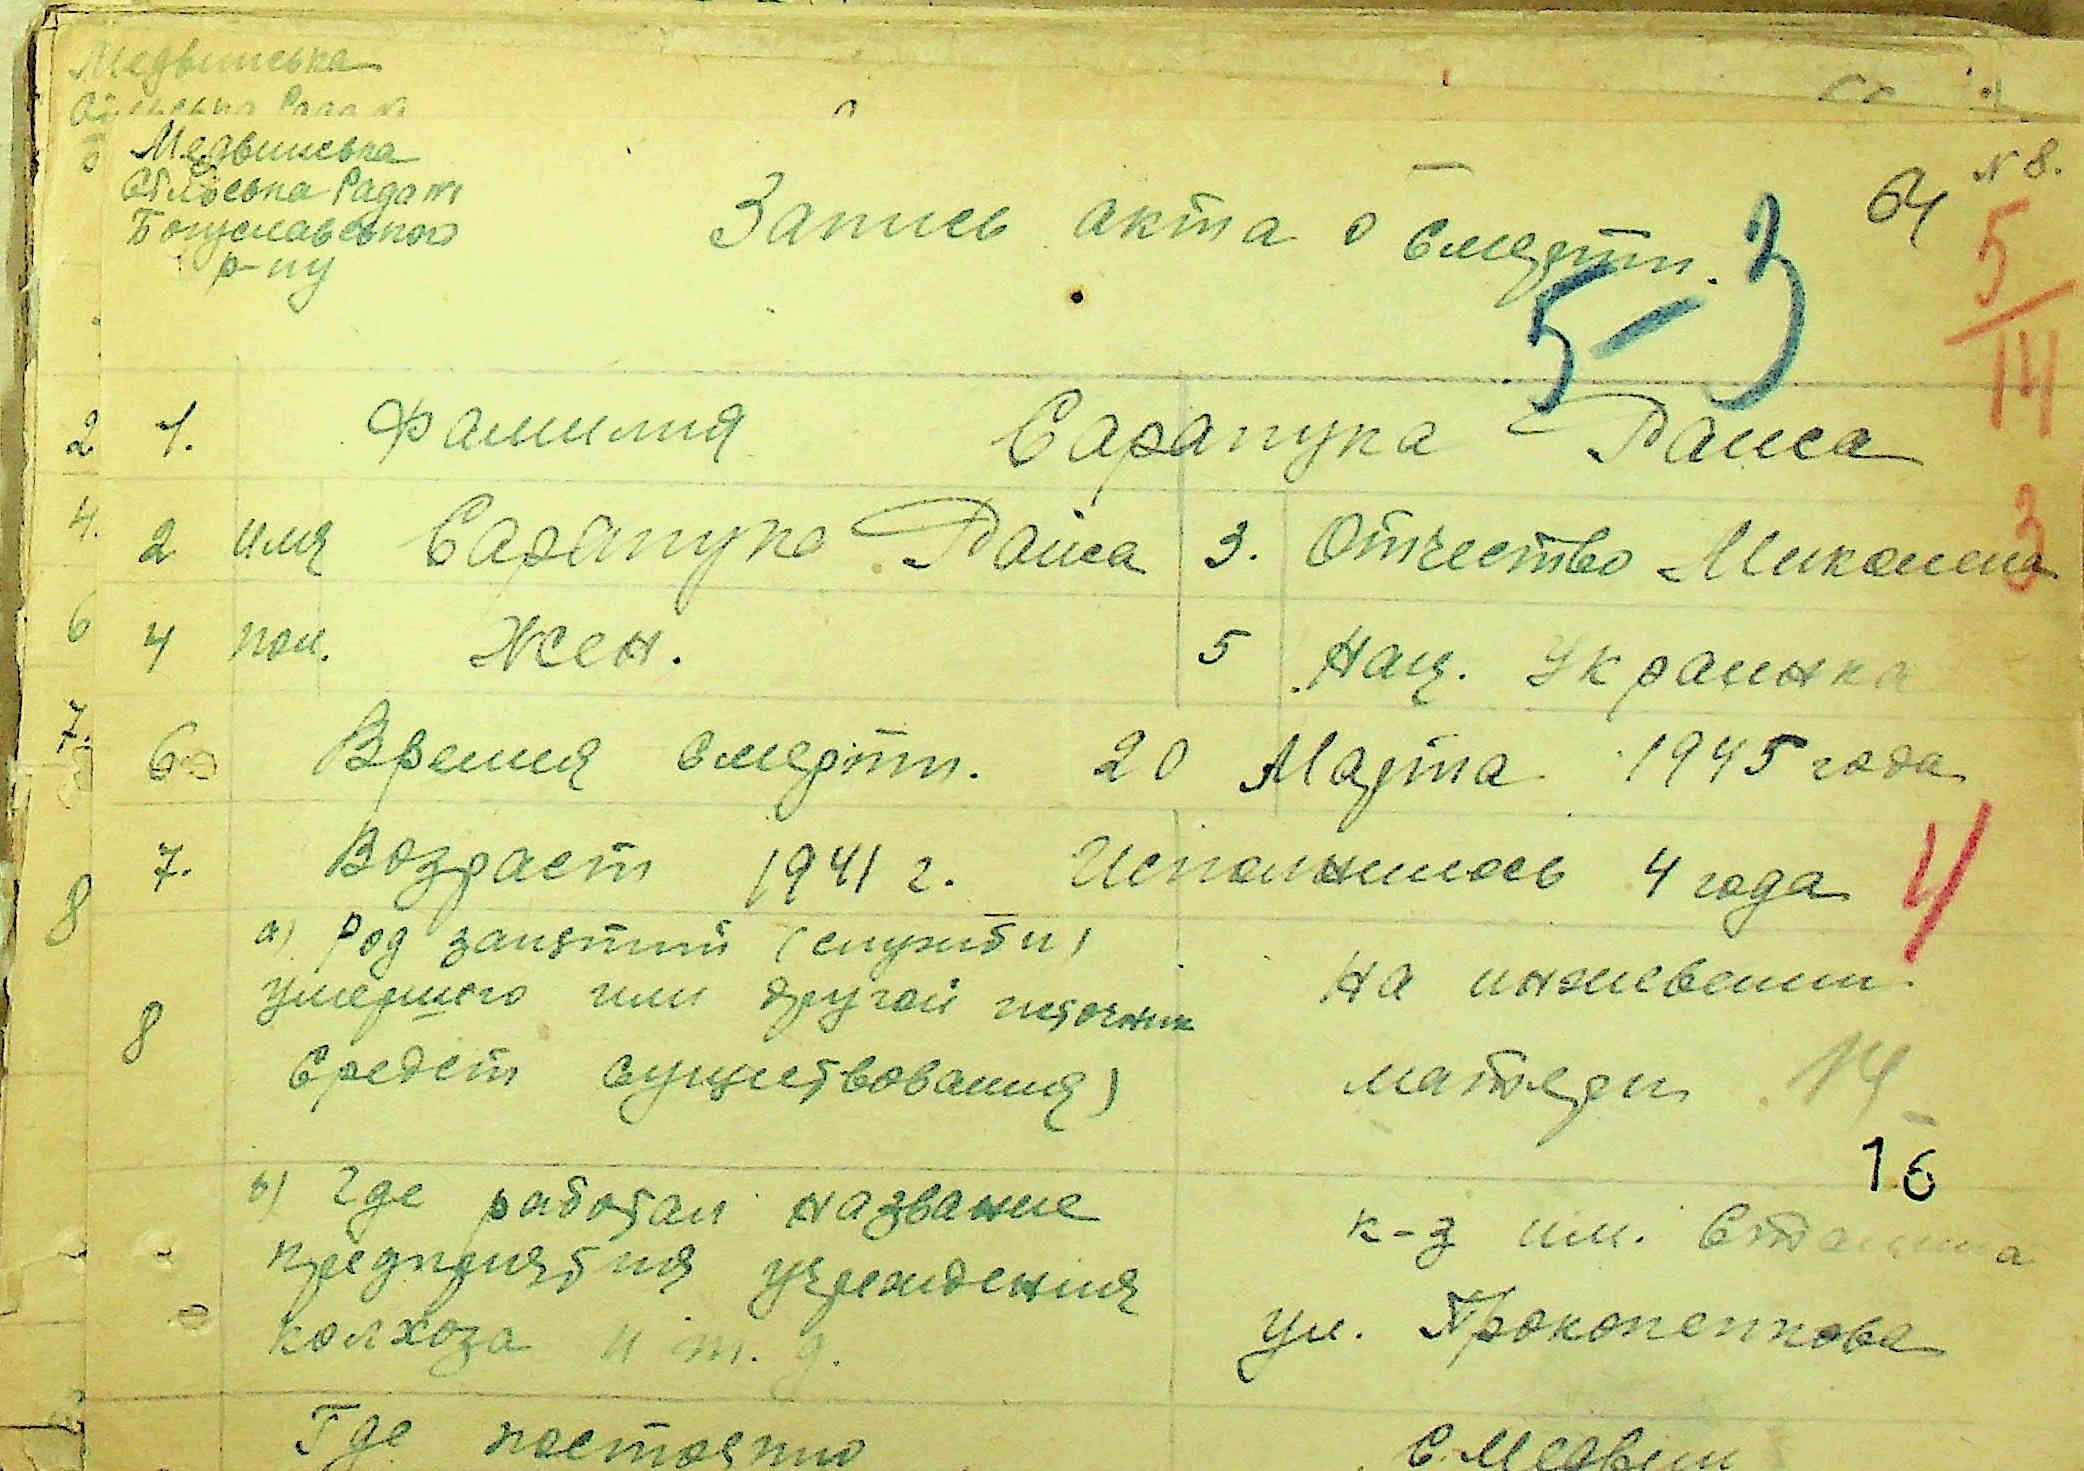 Медвинська
Медвинська
Сільська Рада №1
Богуславського
р-ну
Запись акта о смерти.
64
N 8.
5-3
5/14
1. Фамилия Сарапука Раиса
2 имя Сарапука Раиса 3. Отчество
3
4 пол. Жен. 5 Нац. Украинка
6 Время смерти. 20 Марта 1945 года
7. Возраст 1941 г. Исполнилось 4 года
4
8 а) Род занятий (службы)
умершого или другой источник
Средств существования)
На иждевении
матери
16
в) Где работал название
предприятия учреждения
колхоза и т. д.
к-з им. Сталина
ул. Прокопенкова
Где постояно
С. Медвин